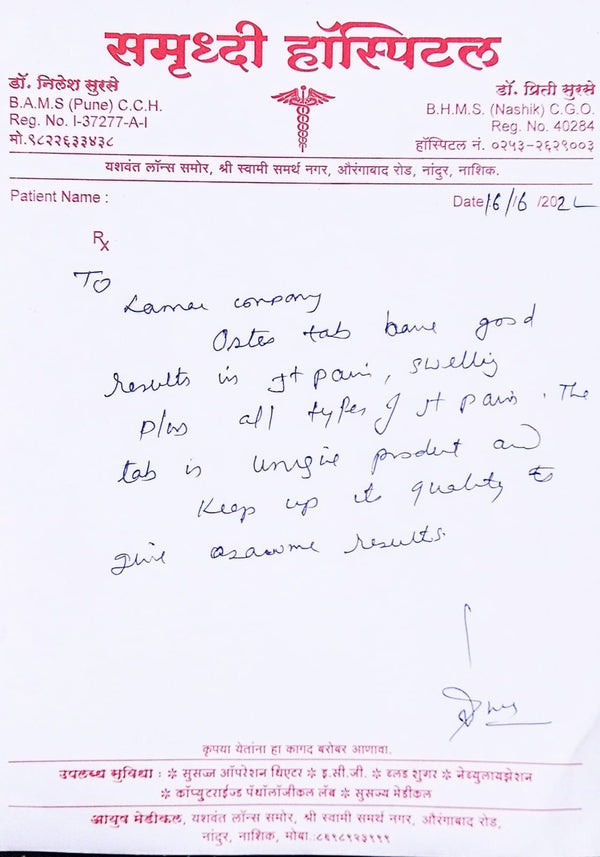 समृध्दी हॉस्पिटल
डॉ. निलेश सुरसे
B.A.M.S (Pune) C.C.H.
Reg. No. I-37277-A-I
मो.९८२२६३३४३८
डॉ. प्रिती सुरसे
B.H.M.S. (Nashik) C.G.O.
Reg. No. 40284
हॉस्पिटल नं. ०२५३-२६२९००३
यशवंत लॉन्स समोर, श्री स्वामी समर्थ नगर, औरंगाबाद रोड, नांदुर, नाशिक.
Patient Name :
Date 16/6/202
Rx
TO
company
tab have good
results in Jt pain, swelling
plus all types of Jt pain. The
tab is unique product and
Keep up its quality to
give results.
कृपया येतांना हा कागद बरोबर आणावा.
उपलब्ध सुविधा : ❇ सुसज्ज ऑपरेशन थिएटर ❇ इ.सी.जी. ❇ ब्लड शुगर ❇ नेब्युलायझेशन
❇ कॉम्प्युटराईज्ड पॅथॉलॉजीकल लॅब ❇ सुसज्य मेडीकल
आयुष मेडीकल, यशवंत लॉन्स समोर, श्री स्वामी समर्थ नगर, औरंगाबाद रोड,
नांदुर, नाशिक, मोबा.:८६९८९२३९९९